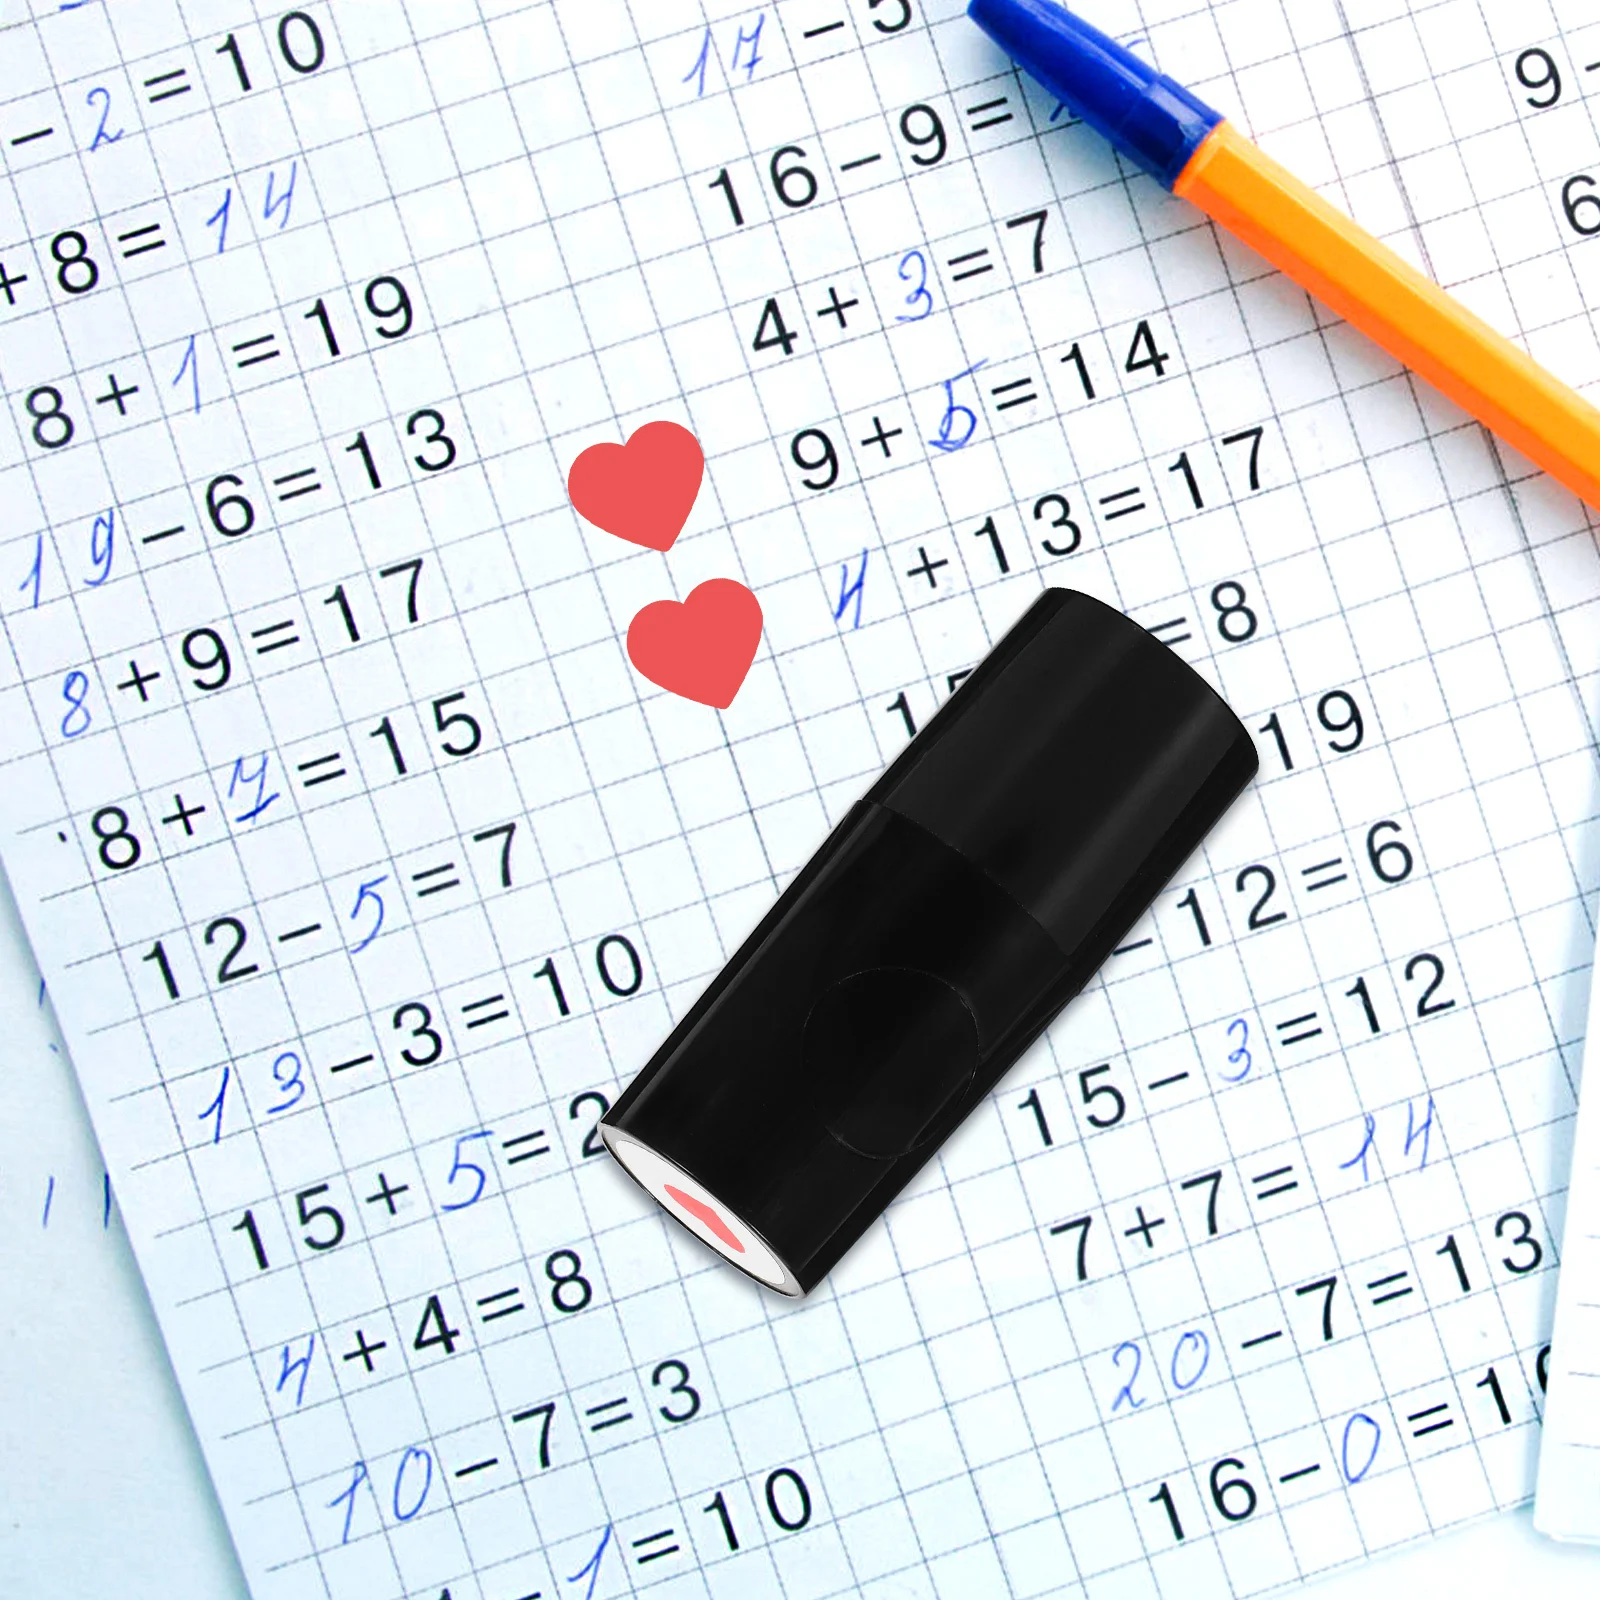 - 2 = 10
+ 8 = 14
8 + 1 = 19
19 - 6 = 13
8 + 9 = 17
8 + 7 = 15
12 - 5 = 7
13 - 3 = 10
15 + 5 = 2
4 + 4 = 8
10 - 7 = 3
- 1 = 10
17 - 5
16 - 9 =
4 + 3 = 7
9 + 5 = 14
4 + 13 = 17
15 = 8
19
- 12 = 6
15 - 3 = 12
7 + 7 = 14
20 - 7 = 13
16 - 0 = 1
9 -
6